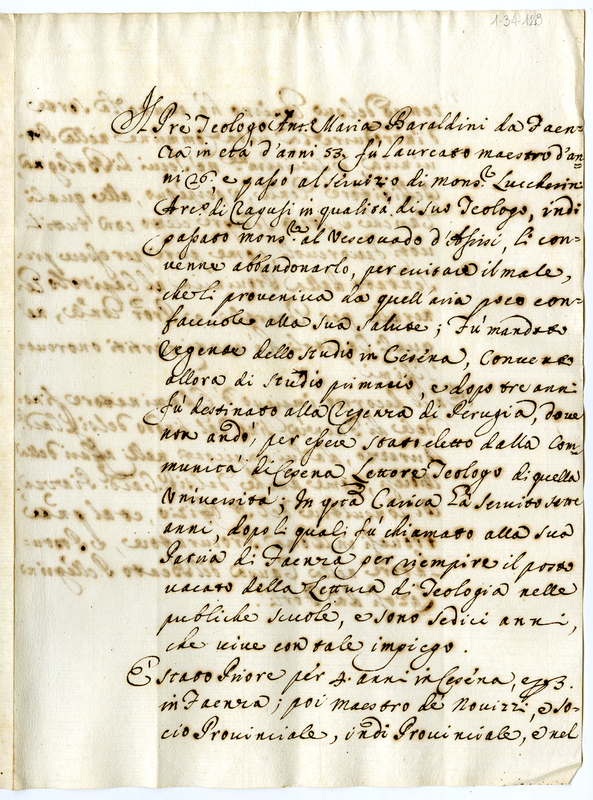 1-34-123
Il Prê Teologo Ant.º Maria Baraldini da Faen-
za in età d'anni 53. fù laureato maestro d'an-
ni 26. e passò al servizio di mons.r Luccherin
Arc.o di Ragusi in qualità di suo Teologo, indi
passato mons.r al Vescovado d'Assisi, li con-
venne abbandonarlo, per evitare il male,
che li proveniva da quell'aria poco con-
faccvole alla sua salute; Fù mandato
Regente dello studio in Cesena, Convento
allora di studio primario, e dopo tre anni
fù destinato alla Regenza di Perugia, dove
non andò, per essere stato eletto dalla Com-
munità di Cesena Lettore Teologo di quella
Università; In q.sta Carica hà servito sette
anni, dopo li quali fù chiamato alla sua
Patria di Faenza per riempire il posto
vacato della Lettura di Teologia nelle
publiche scuole, e sono sedici anni,
che vive con tale impiego.
È stato Priore per 4. anni in Cesena, e 3.
in Faenza; poi maestro de Novizzi, e so-
cio Provinciale, indi Provinciale, e nel